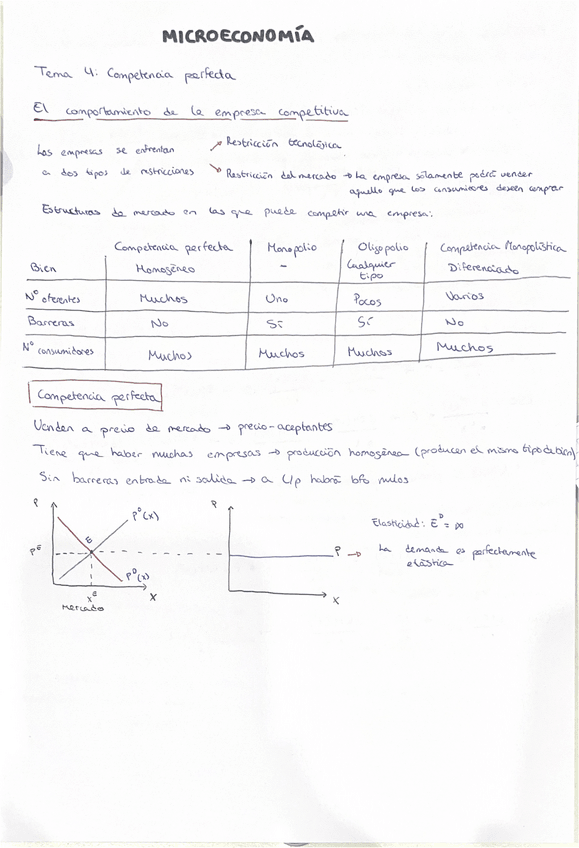 MICROECONOMÍA
Tema 4: Competencia perfecta
El comportamiento de la empresa competitiva
Las empresas se enfrentan
a dos tipos de restricciones
Restricción tecnológica
Restricción del mercado → La empresa sólamente podrá vender
aquello que los consumidores deseen comprar
Estructuras de mercado en las que puede competir una empresa:
Competencia perfecta Monopolio Oligopolio Competencia Monopolística
Bien Homogéneo - Cualquier tipo Diferenciado
Nº oferentes Muchos Uno Pocos Varios
Barreras No Sí Sí No
Nº consumidores Muchos Muchos Muchos Muchos
Competencia perfecta
Venden a precio de mercado → precio-aceptantes
Tiene que haber muchas empresas → producción homogénea (producen el mismo tipo de bien)
Sin barreras entrada ni salida → a l/p habrá bfo nulos
P
P^O(x)
E
P^E
P^D(x)
x^E
X
Mercado
P
P
X
Elasticidad: E^D = ∞
→ La demanda es perfectamente
elástica